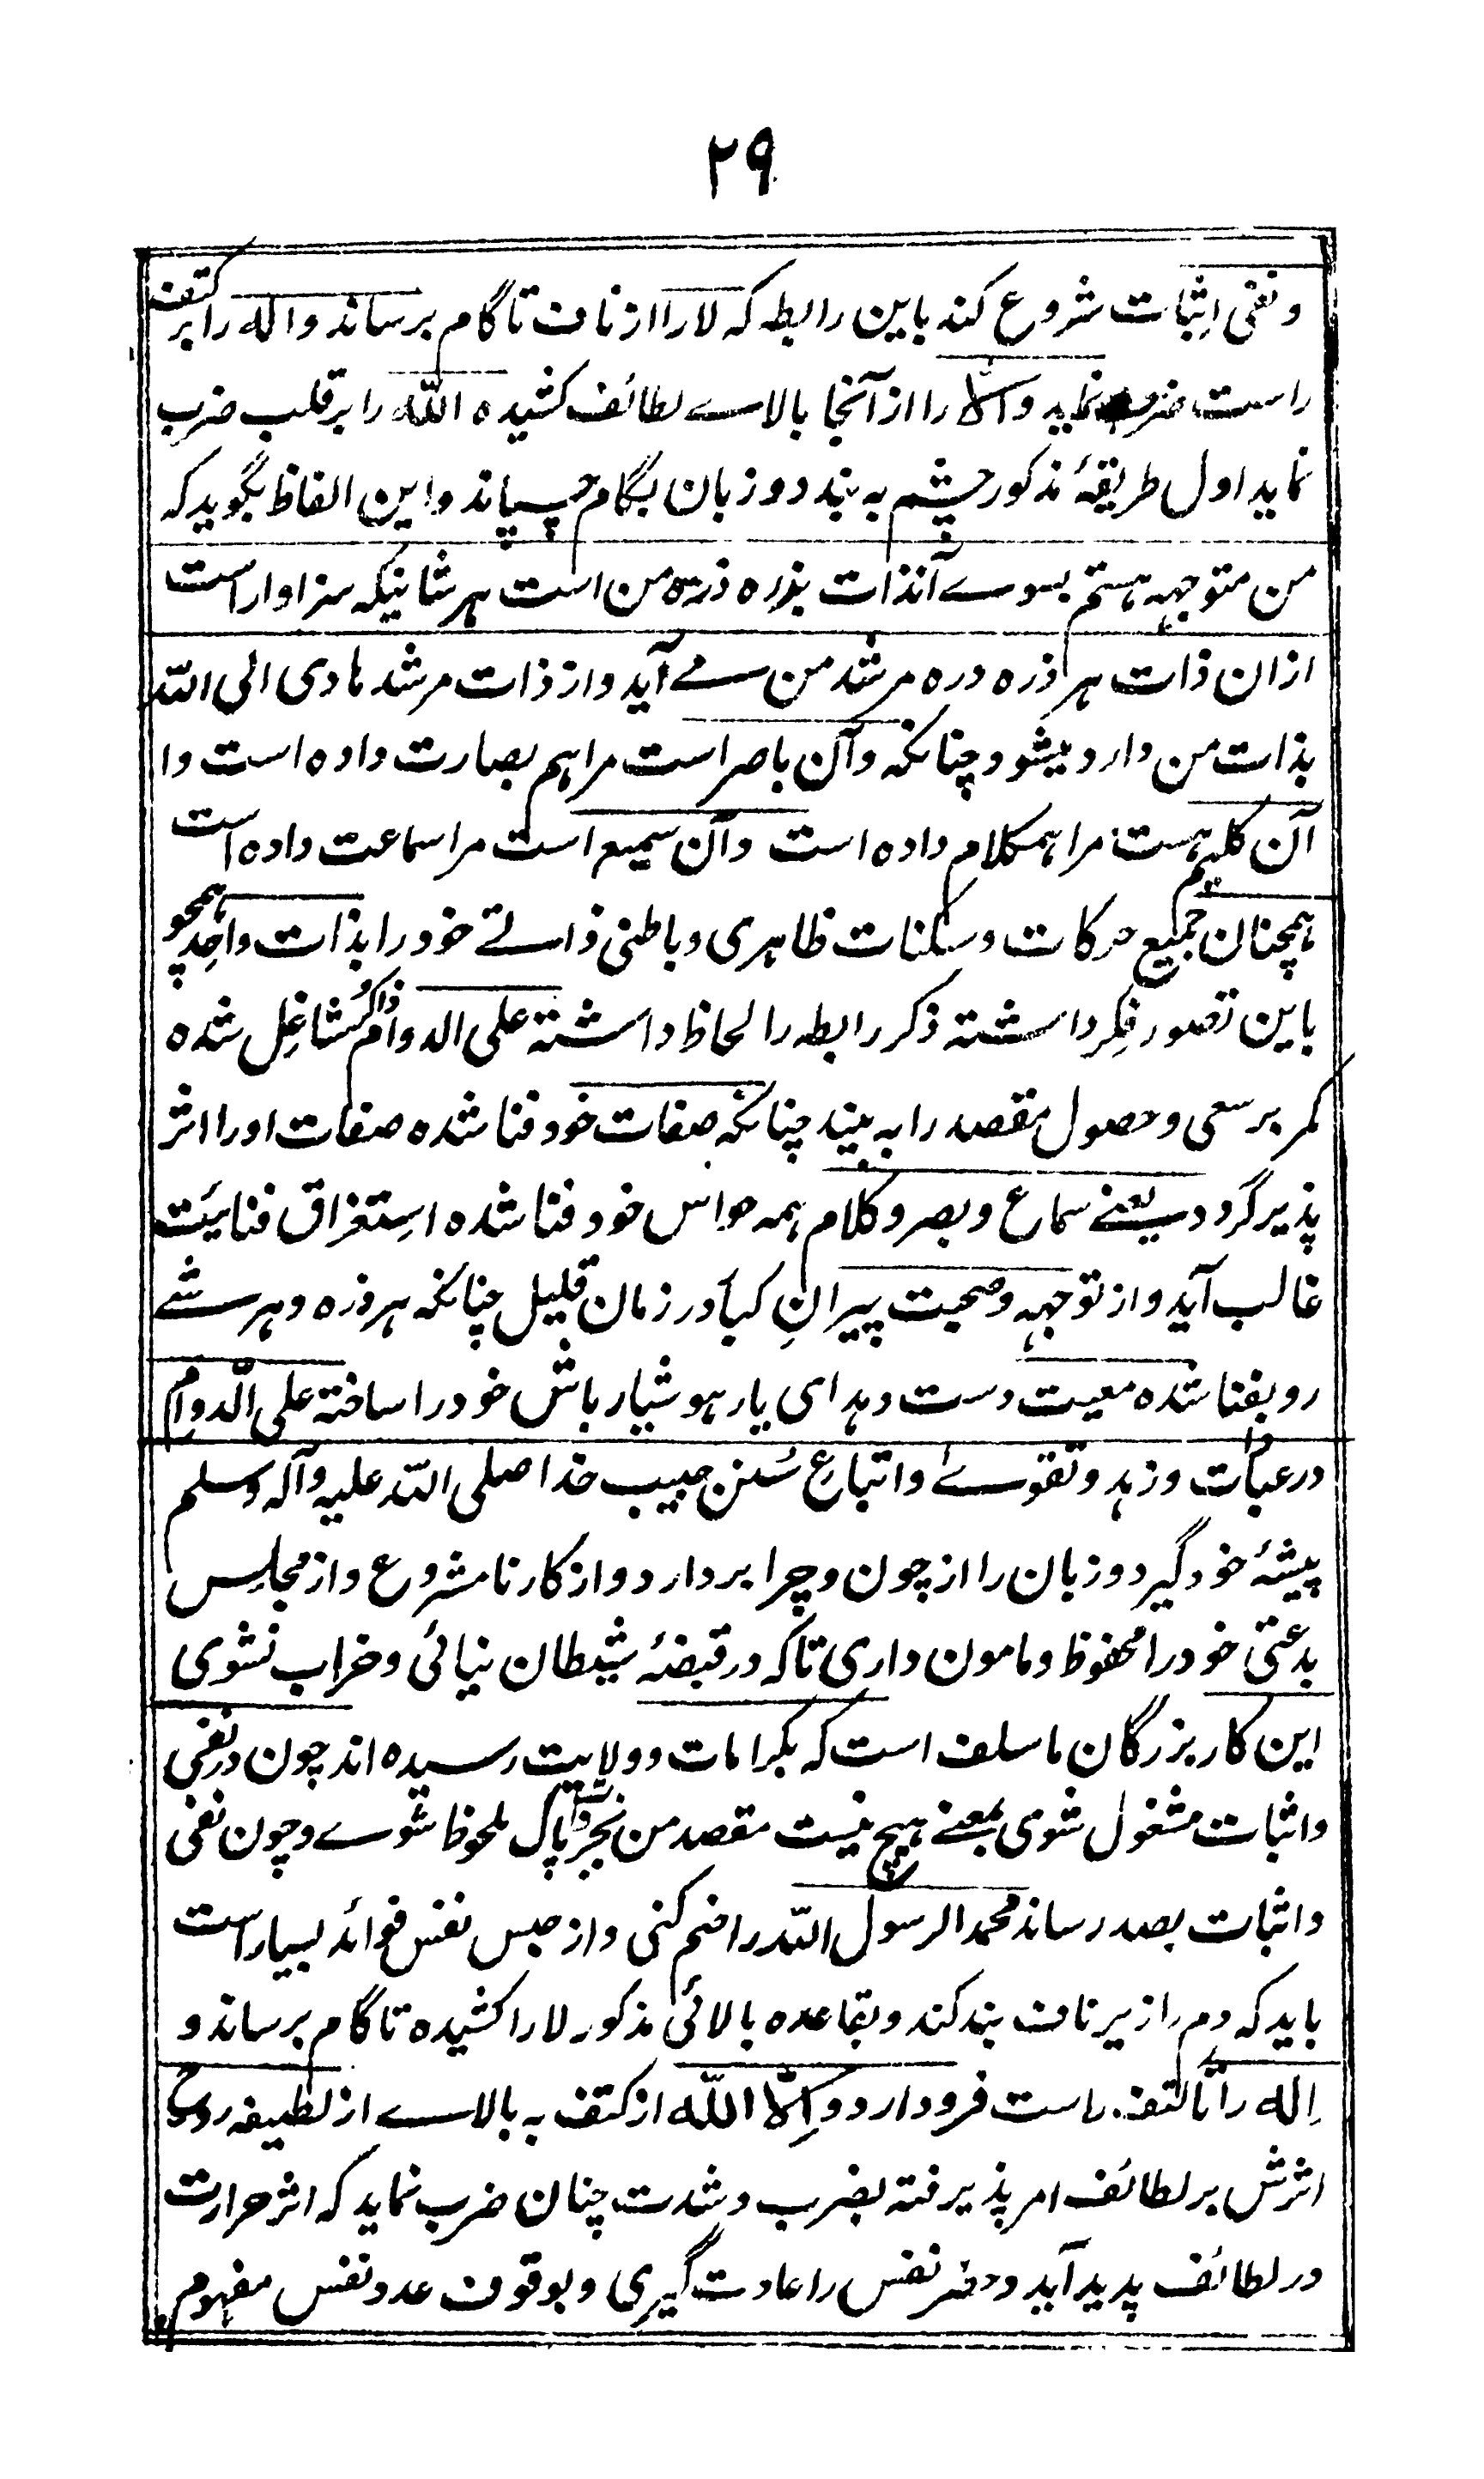 ۲۹
ونفی اِثبات شروع کند باین رابطہ کہ لا را از ناف تا گام برساند و الہ را بر کتف
راست ضرب نماید و اِلّا را از آنجا بالاے لطائف کشیدہ اللّٰہ را بر قلب ضرب
نماید اول طریقۂ مذکور چشم بہ بندد و زبان بگام چسپاند و این الفاظ بگوید کہ
من متوجہہ ہستم بسوے آنذات بذرہ ذرہ من است ہر شانیکہ سزاوار است
ازان ذات ہر ذرہ درہ مرشد من مے آید و از ذات مرشد ہادی الی اللّٰہ
بذات من وارد میشود چنانکہ و آن باصر است مرا ہم بصارت دادہ است و ا
آن کلیم ہست مرا ہمکلام دادہ است و آن سمیع است مرا سماعت دادہ است
ہمچنان جمیع حرکات و سکنات ظاہری و باطنی ذاتے خود را بذات واحد ہمچو
باین تصور فِکر داشتہ ذکر رابطہ را لحاظ داشتہ علی الدوام ذاکر و شاغِل شدہ
کمر بر سعی و حصول مقصد را بہ بیند چنانکہ صفات خود فنا شدہ صفات او را اثر
پذیر گردد یعنے سماع و بصر و کلام ہمہ حواس خود فنا شدہ اِستغراق فنائیت
غالب آید و از توجہہ و صحبت پیرانِ کبار در زمان قلیل چنانکہ ہر ذرہ و ہر شے
رو بفنا شدہ معیت دست دہد ای یار ہوشیار باش خود را ساختہ علی الّدوام
در عبادات و زہد و تقوےٰ و اتباعِ سُنن حبیب خدا صلی اللّٰہ علیہ و آلہ وسلم
پیشۂ خود گیرد و زبان را از چون و چرا بردارد و از کار نا مشروع و از مجالِس
بدعتی خود را محفوظ و مامون داری تاکہ در قبضۂ شیطان نیائی و خراب نشوی
این کار بزرگان ما سلف است کہ بکرامات و ولایت رسیدہ اند چون در نفی
و اثبات مشغول شوی بمعنے ہیچ نیست مقصد من بجز ذات پاک ملحوظ شوے و چون نفی
و اثبات بصد رساند محمد الرسول اللّٰہ را ضم کنی و از حبس نفس فوائد بسیار است
باید کہ دم را زیر ناف بند کند و بقاعدہ بالائی مذکور لا را کشیدہ تا گام برساند و
اِلٰہ را تا کتف راست فرود آرد و اِلّا اللّٰہ از کتف بہ بالاے از لطیفہ روح
اثرش بر لطائف امر پذیرفتہ بضرب و شدت چنان ضرب نماید کہ اثر حرارت
در لطائف پدید آید و نفس را عادت گیری و بوقوف عدد نفس مفہوم